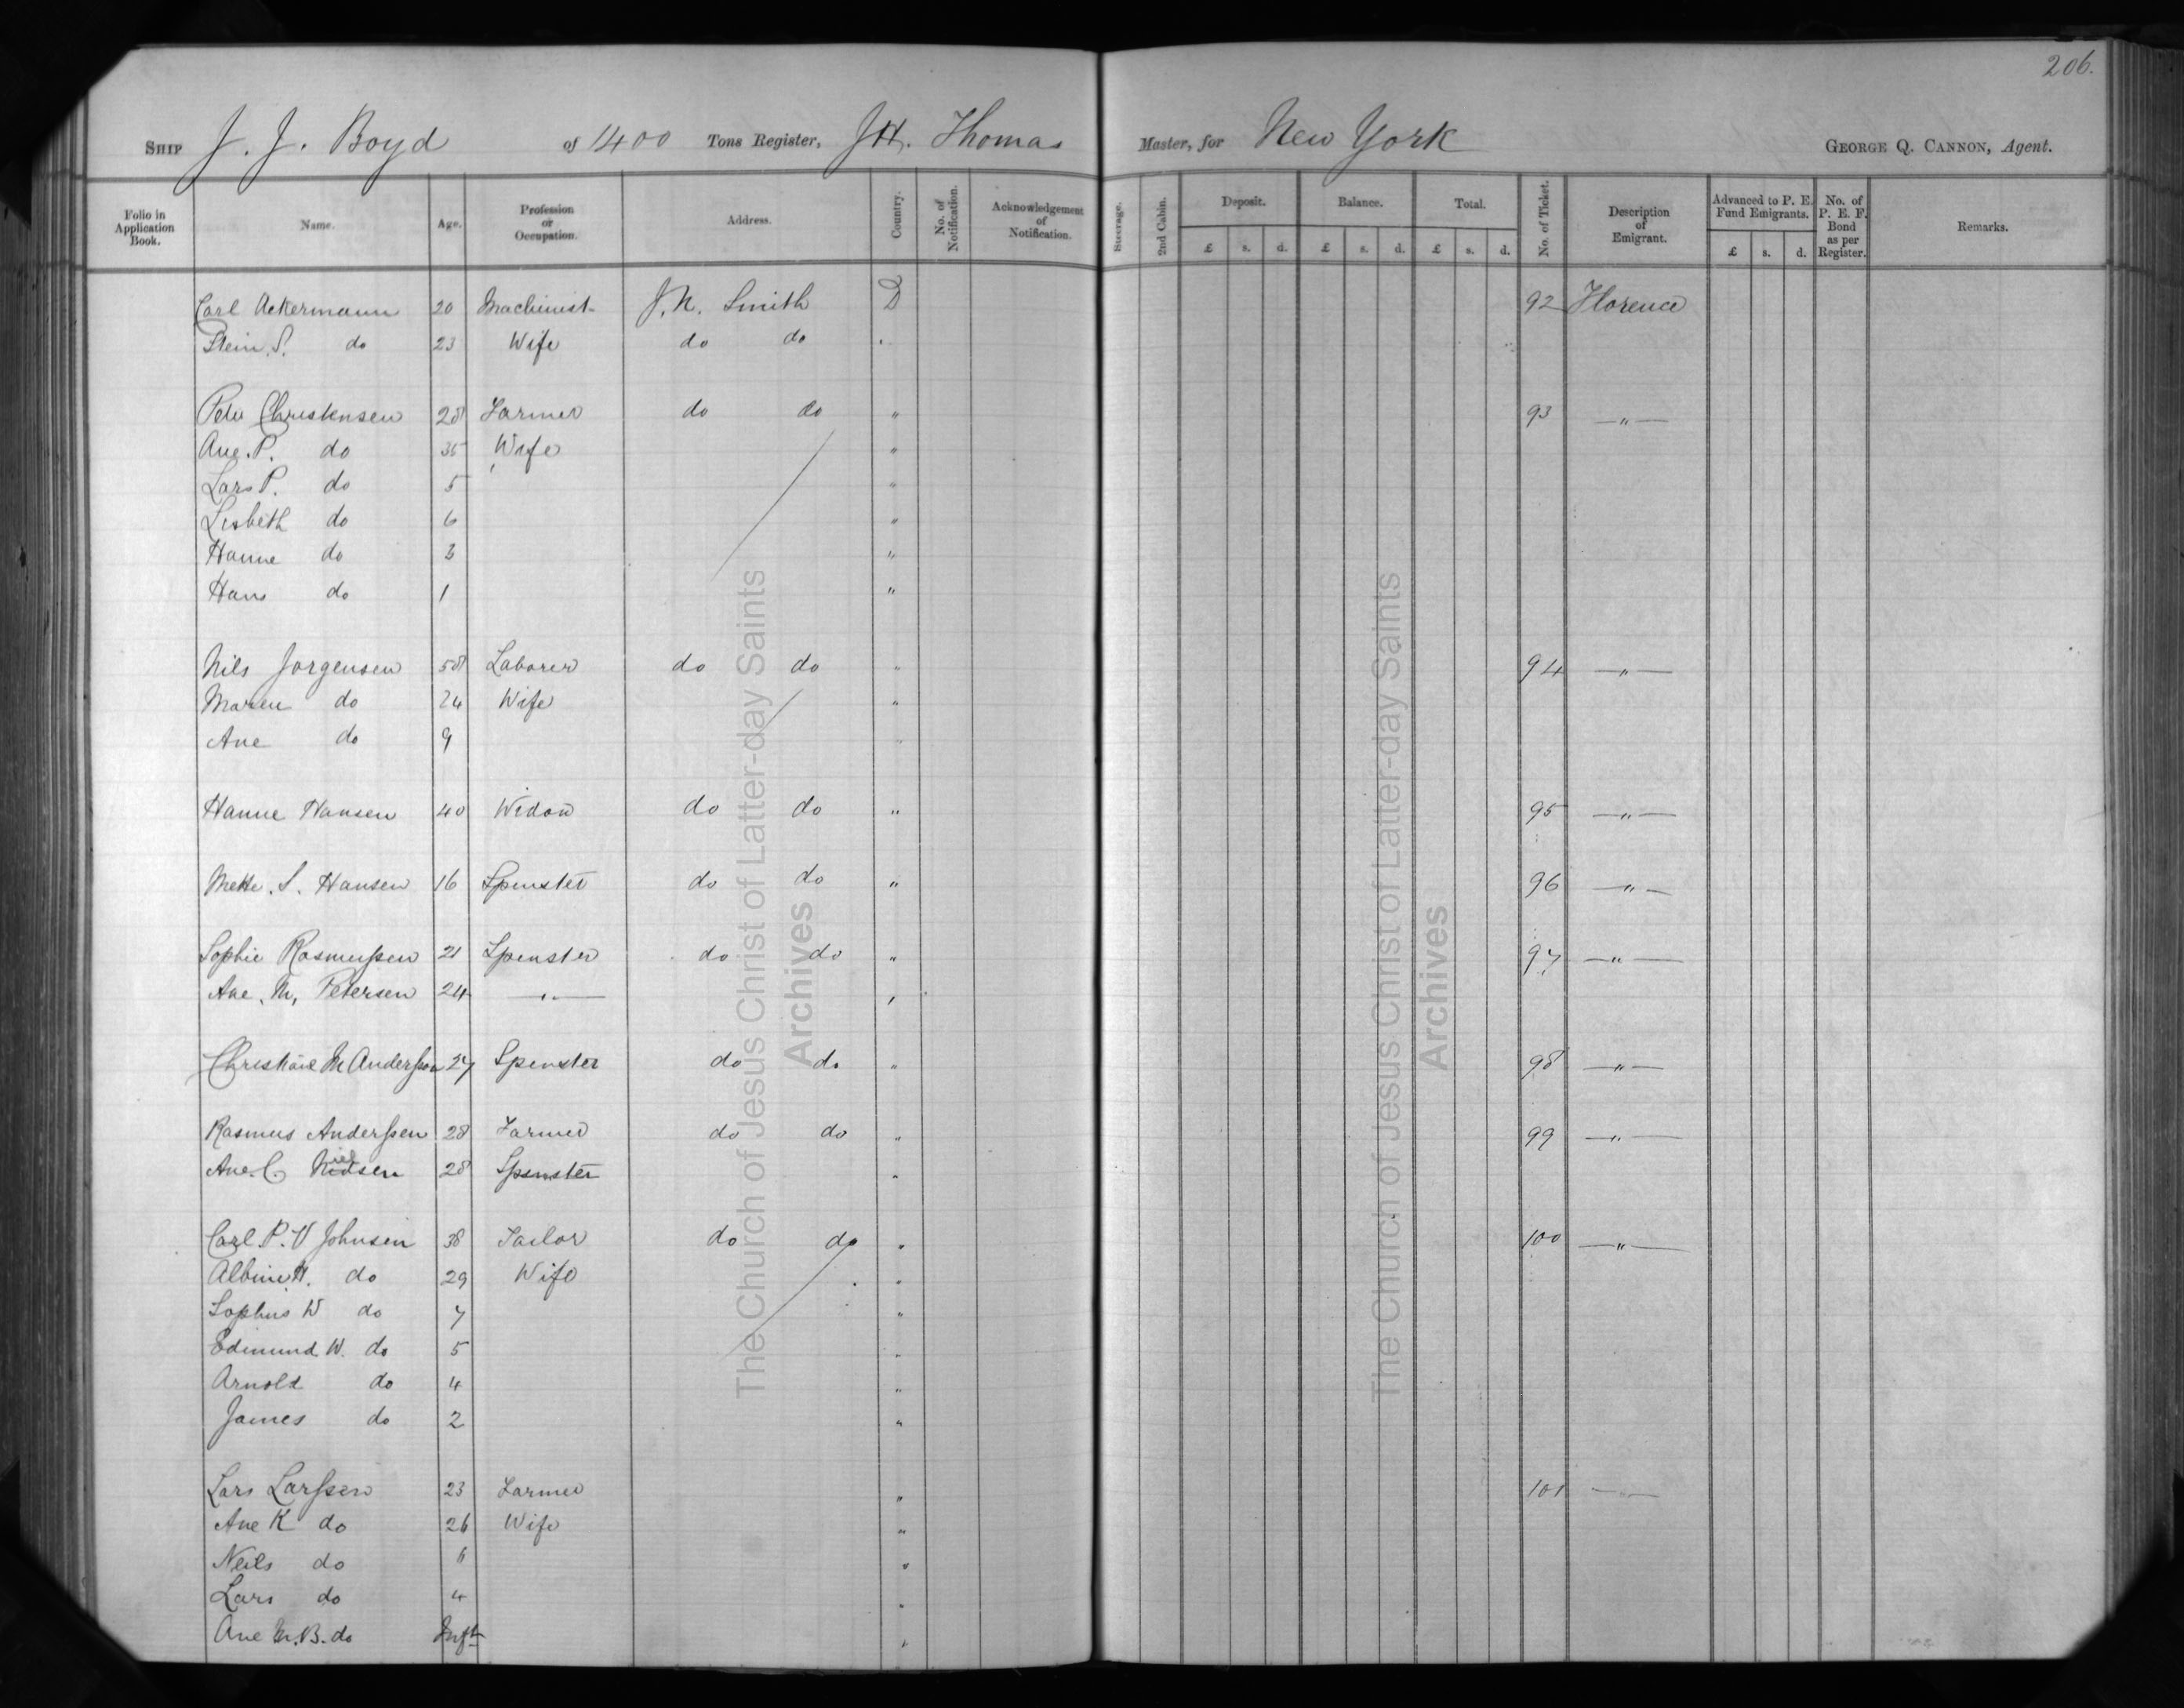 206.
SHIP J. J. Boyd of 1400 Tons Register, J H. Thomas Master, for New York GEORGE Q. CANNON, Agent.
Folio in Application Book. Name. Age. Profession or Occupation. Address. Country. No. of Notification. Acknowledgement of Notification. Steerage. 2nd Cabin. Deposit. £ s. d. Balance. £ s. d. Total. £ s. d. No. of Ticket. Description of Emigrant. Advanced to P. E. Fund Emigrants. £ s. d. No. of P. E. F. Bond as per Register. Remarks.
Carl Ackermann 20 Machinist J. N. Smith D 92 Florence
Stein. S. do 23 Wife do do
Peter Christensen 28 Farmer do do " 93 —"—
Ane. P. do 35 Wife "
Lars P. do 5 "
Lisbeth do 6 "
Hanne do 3 "
Hans do 1 "
Nils Jorgensen 58 Laborer do do " 94 —"—
Maren do 24 Wife "
Ane do 9 "
Hanne Hansen 40 Widow do do " 95 —"—
Mette. S. Hansen 16 Spinster do do " 96 —"—
Sophie Rasmussen 21 Spinster do do " 97 —"—
Ane. M. Petersen 24 —"— "
Christiane M Andersson 27 Spinster do do " 98 —"—
Rasmus Anderssen 28 Farmer do do " 99 —"—
Ane. C. Nielsen 28 Spinster "
Carl. P. V Johnsen 38 Tailor do do " 100 —"—
Albine H. do 29 Wife "
Sophus W do 7 "
Edmund W. do 5 "
Arnold do 4 "
James do 2 "
Lars Larssen 23 Farmer " 101 —"—
Ane K do 26 Wife "
Neils do 6 "
Lars do 4 "
Ane M. B. do Inft "
The Church of Jesus Christ of Latter-day Saints
Archives
The Church of Jesus Christ of Latter-day Saints
Archives